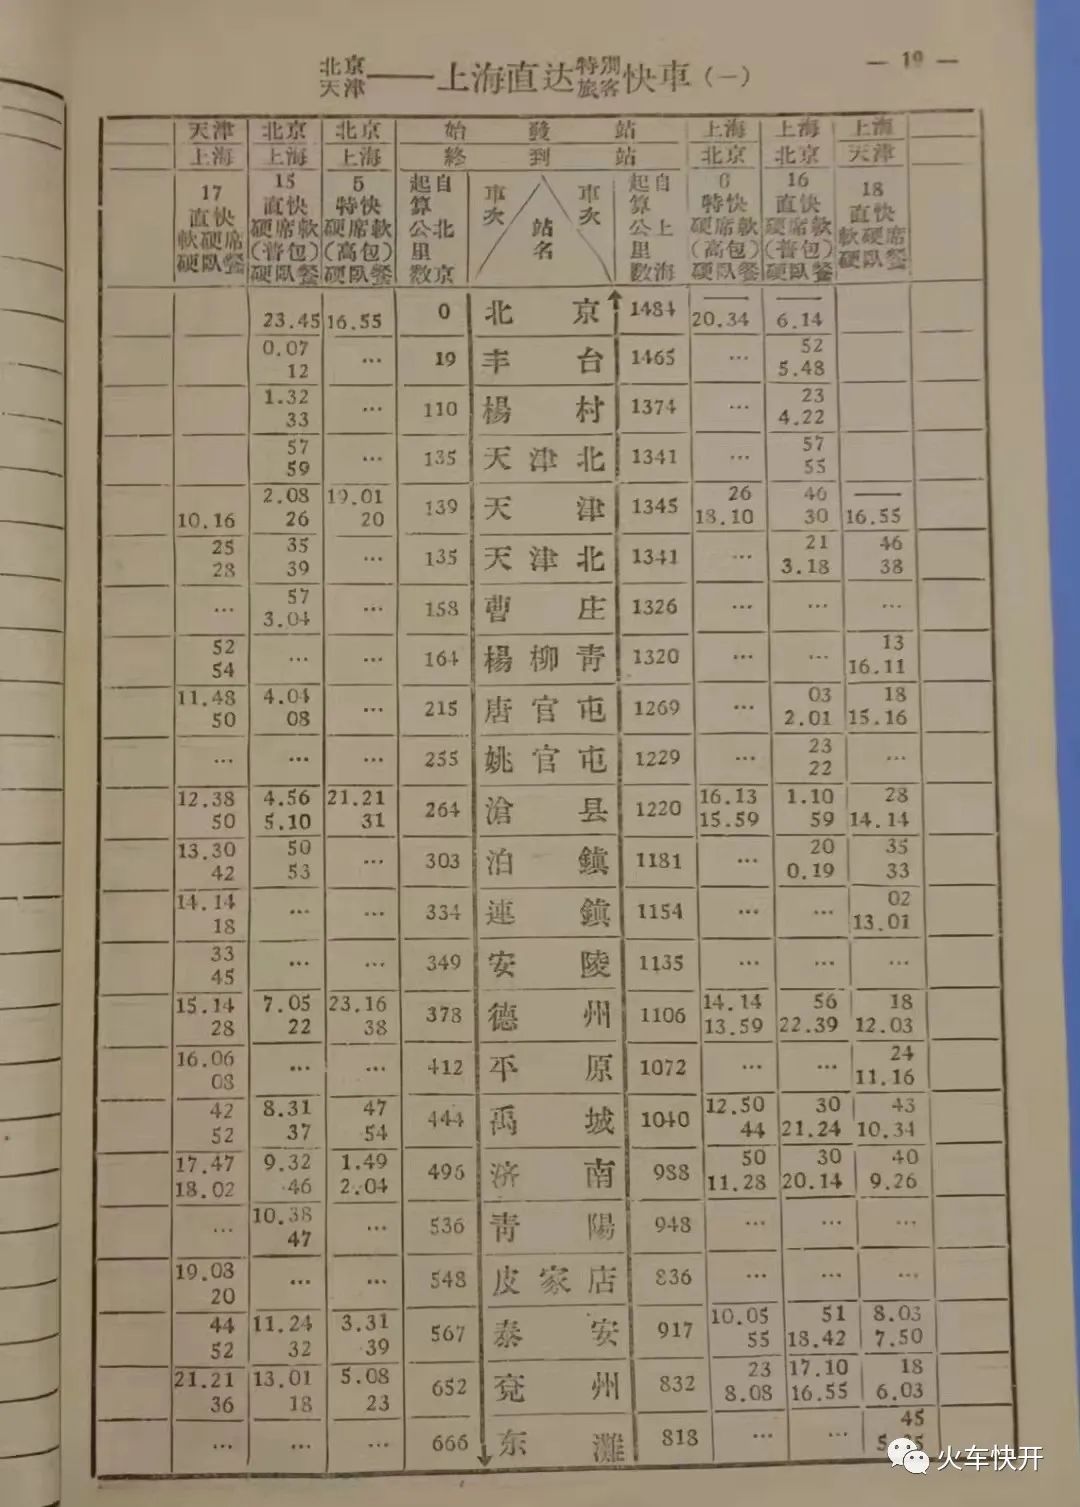 — 19 —
北京 天津 —— 上海直达 特別 旅客 快車 (一)
天津 北京 北京 始發站 上海 上海 上海
上海 上海 上海 終到站 北京 北京 天津
17 直快 軟硬席 硬臥餐
15 直快 硬席軟 (普包) 硬臥餐
5 特快 硬席軟 (高包) 硬臥餐
自北京起算公里数
車次 站名 車次
自上海起算公里数
6 特快 硬席軟 (高包) 硬臥餐
16 直快 硬席軟 (普包) 硬臥餐
18 直快 軟硬席 硬臥餐
— —
23.45 16.55 0 北京 1484 20.34 6.14
0.07 52
12 … 19 丰台 1465 … 5.48
1.32 23
33 … 110 楊村 1374 … 4.22
57 57
59 … 135 天津北 1341 … 55
2.08 19.01 26 46 —
10.16 26 20 139 天津 1345 18.10 30 16.55
25 35 21 46
28 39 … 135 天津北 1341 … 3.18 38
57
… 3.04 … 158 曹庄 1326 … … …
52 13
54 … … 164 楊柳青 1320 … … 16.11
11.48 4.04 03 18
50 08 … 215 唐官屯 1269 … 2.01 15.16
23
… … … 255 姚官屯 1229 … 22 …
12.38 4.56 21.21 16.13 1.10 28
50 5.10 31 264 滄县 1220 15.59 59 14.14
13.30 50 20 35
42 53 … 303 泊鎮 1181 … 0.19 33
14.14 02
18 … … 334 連鎮 1154 … … 13.01
33
45 … … 349 安陵 1135 … … …
15.14 7.05 23.16 14.14 56 18
28 22 38 378 德州 1106 13.59 22.39 12.03
16.06 24
08 … … 412 平原 1072 … … 11.16
42 8.31 47 12.50 30 43
52 37 54 444 禹城 1040 44 21.24 10.34
17.47 9.32 1.49 50 30 40
18.02 46 2.04 496 济南 988 11.28 20.14 9.26
10.38
… 47 … 536 青陽 948 … … …
19.08
20 … … 548 皮家店 836 … … …
44 11.24 3.31 10.05 51 8.03
52 32 39 567 泰安 917 55 18.42 7.50
21.21 13.01 5.08 23 17.10 18
36 18 23 652 兗州 832 8.08 16.55 6.03
45
… … … 666 东灘 818 … …
火车快开